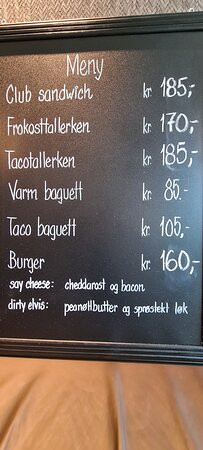 Meny
Club sandwich kr. 185,-
Frokosttallerken kr. 170,-
Tacotallerken kr. 185,-
Varm bagett kr. 85.-
Taco bagett kr. 105,-
Burger kr. 160,-
say cheese: cheddarost og bacon
dirty elvis: peanøttbutter og sprøstekt løk